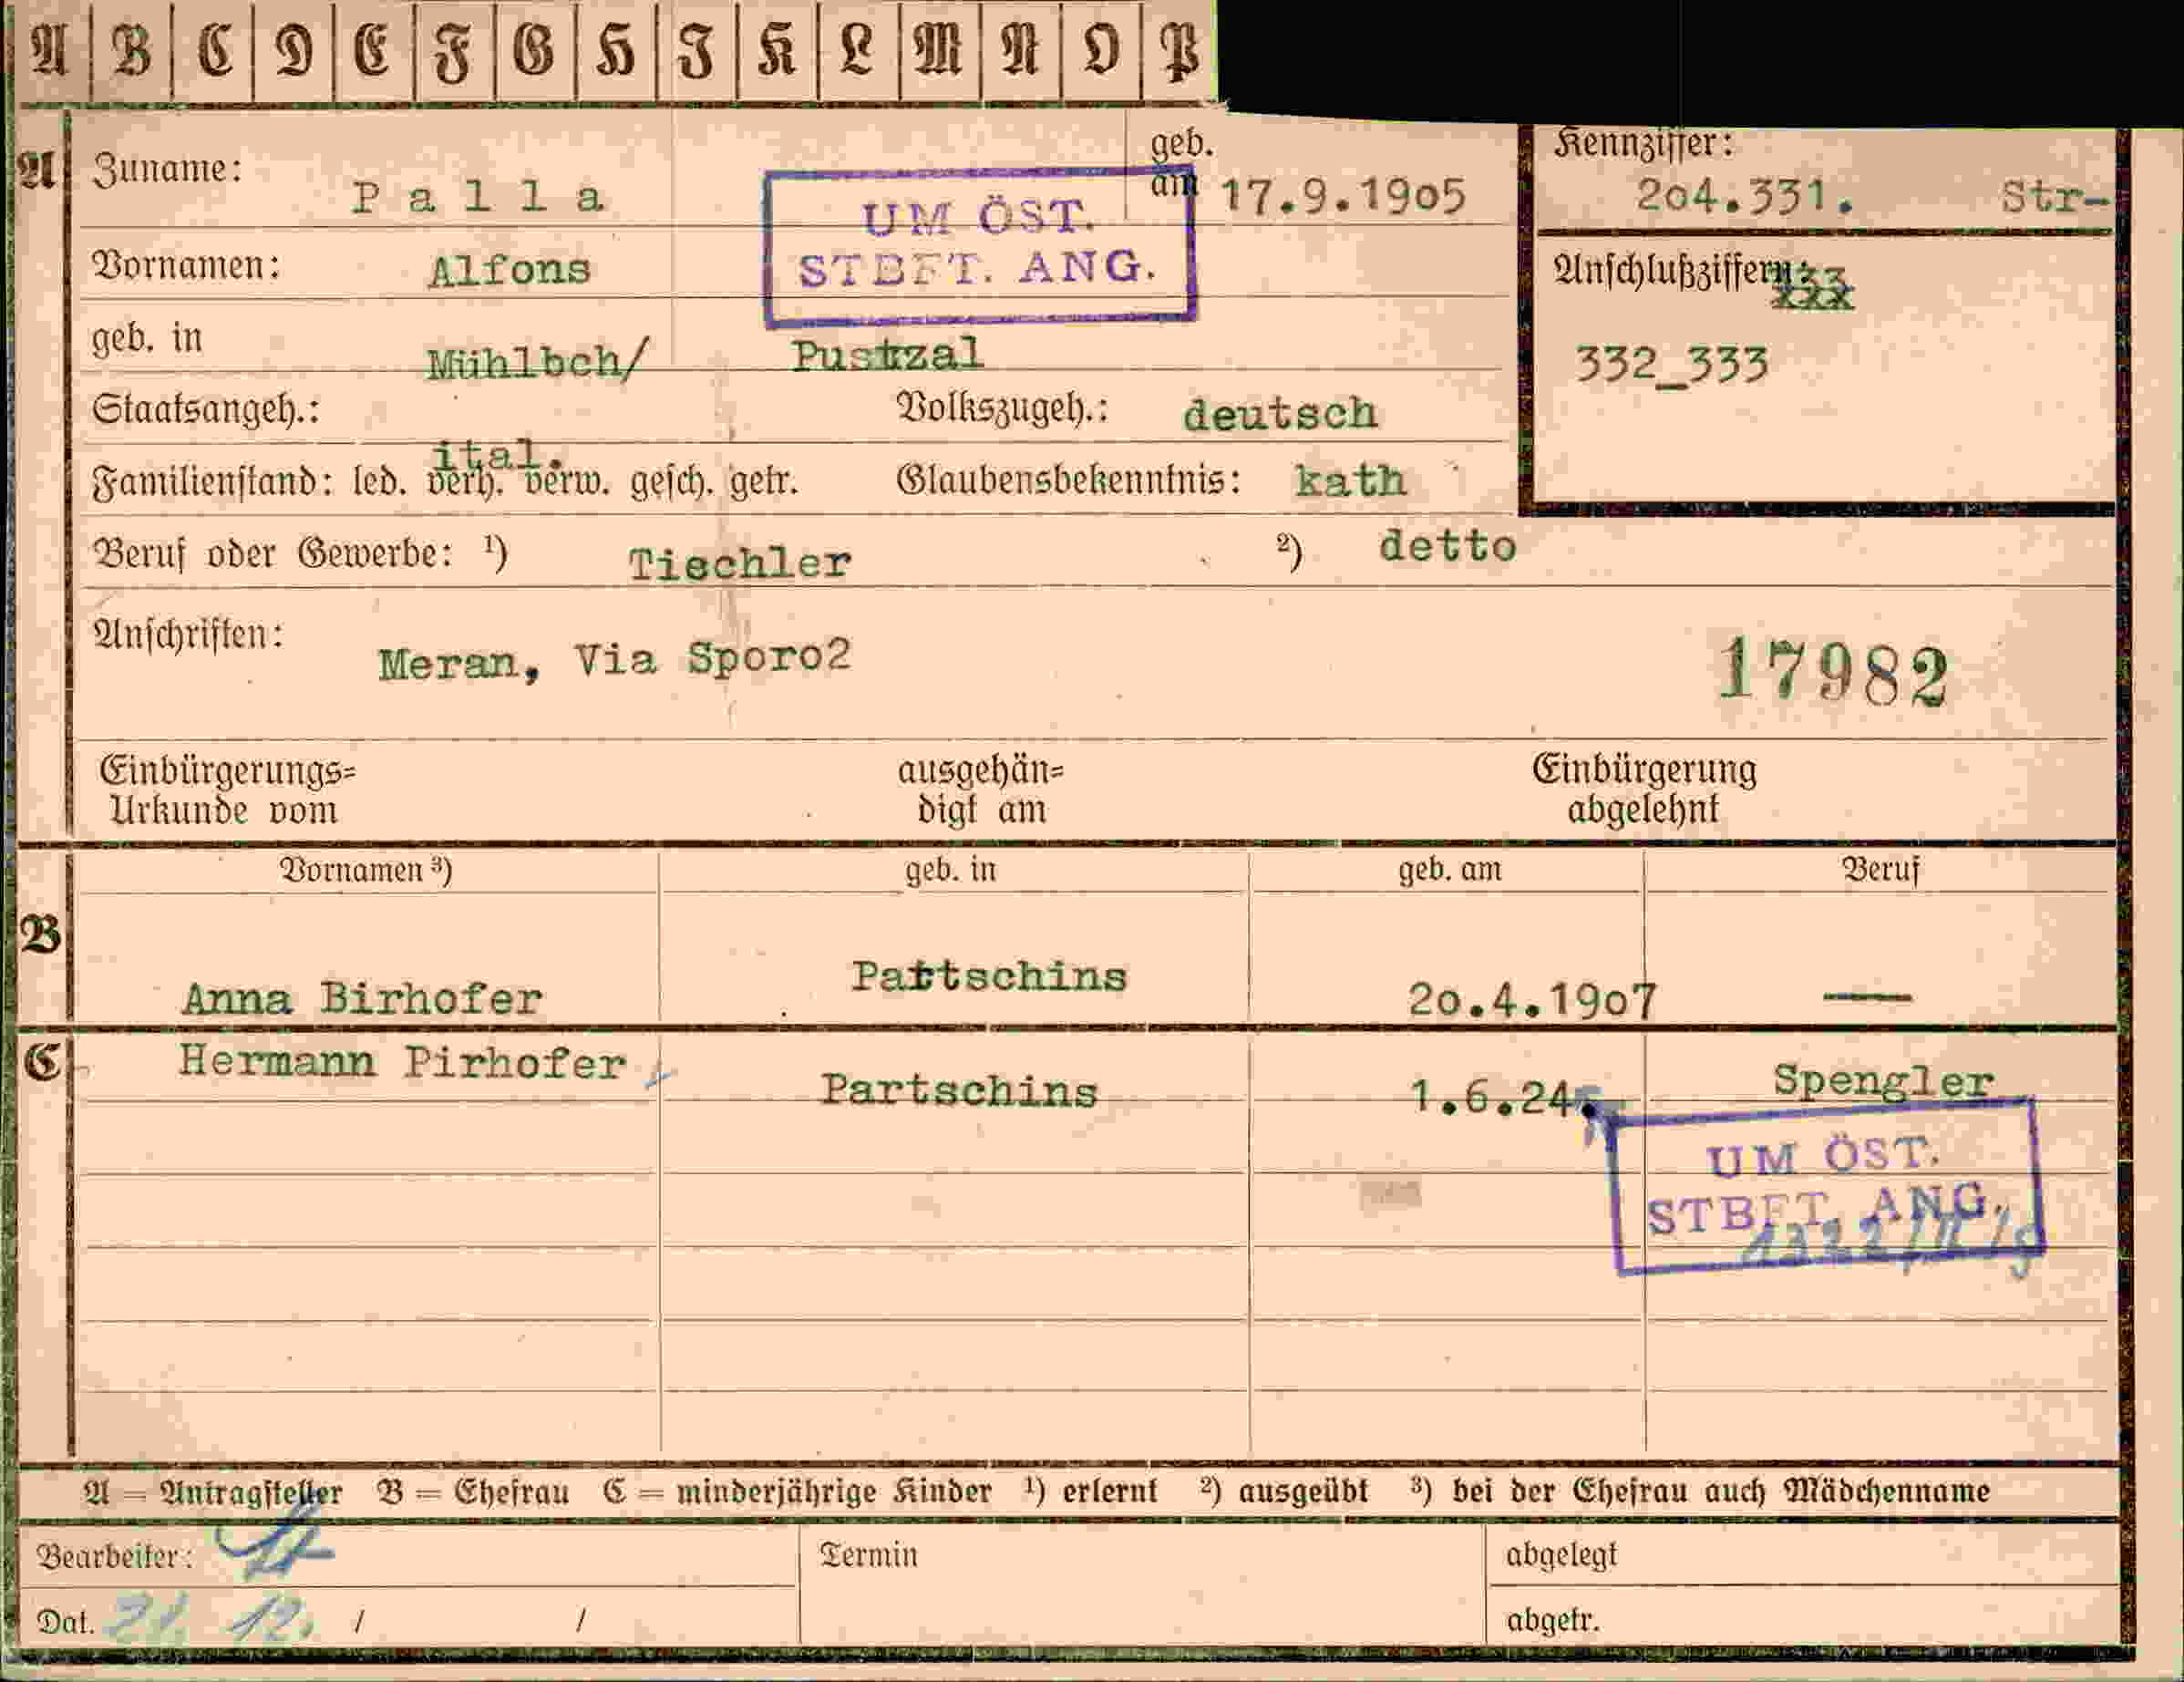 A B C D E F G H I K L M N O P
geb.
Kennziffer:
A Zuname: Palla am 17.9.1905 204.331. Str-
UM ÖST.
STBFT. ANG.
Vornamen: Alfons Anschlußziffern
geb. in Mühlbch/ Pustzal 332_333
Staatsangeh.: ital. Volkszugeh.: deutsch
Familienstand: led. verh. verw. gesch. getr. Glaubensbekenntnis: kath
Beruf oder Gewerbe: 1) Tischler 2) detto
Anschriften: Meran, Via Sporo2 17982
Einbürgerungs= ausgehän= Einbürgerung
Urkunde vom digt am abgelehnt
Vornamen 3) geb. in geb. am Beruf
B Anna Birhofer Partschins 20.4.1907 —
C Hermann Pirhofer Partschins 1.6.24. Spengler
UM ÖST.
STBFT. ANG.
A = Antragsteller B = Ehefrau C = minderjährige Kinder 1) erlernt 2) ausgeübt 3) bei der Ehefrau auch Mädchenname
Bearbeiter: Termin abgelegt
Dat. 21. 12. / / abgetr.